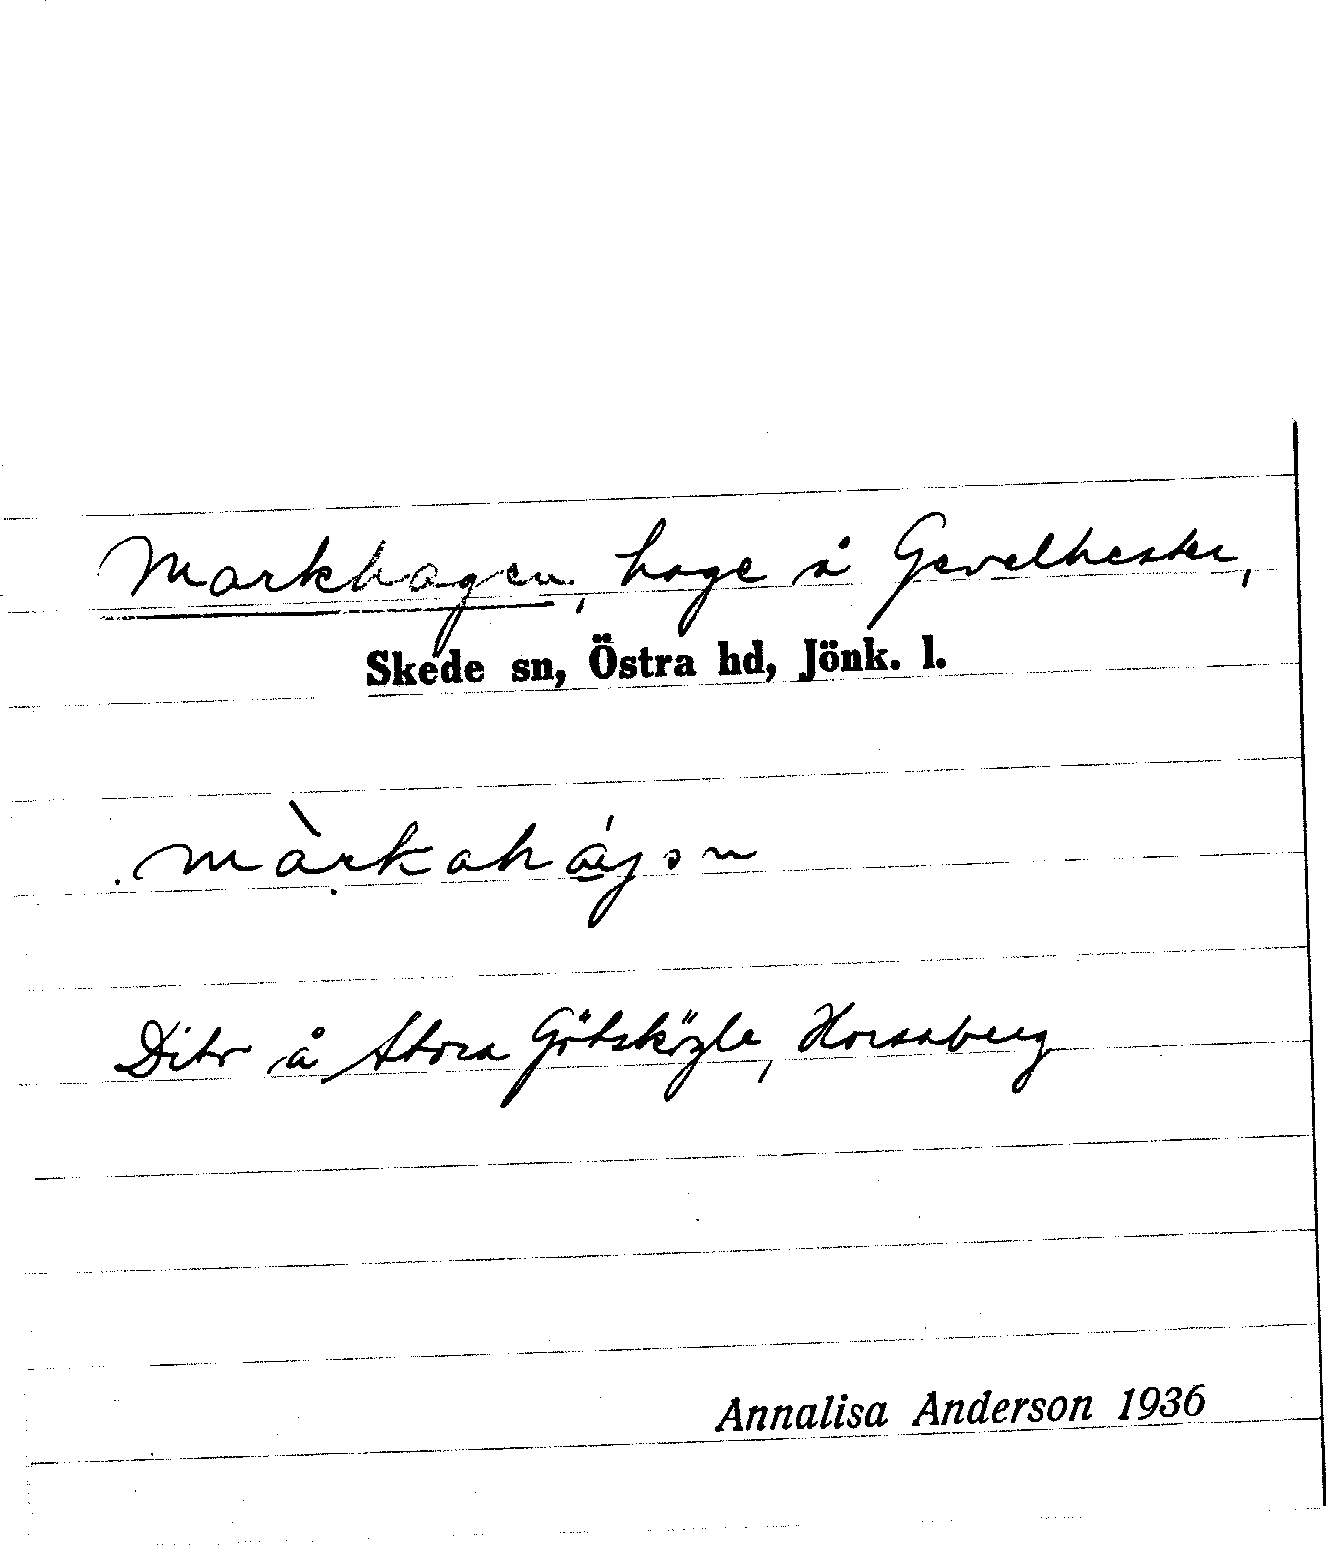 Markhagen, hage å Gevelhester,
Skede sn, Östra hd, Jönk. l.
màrkahágən
Dito å Stora Götsközle, Horsaberg
Annalisa Anderson 1936